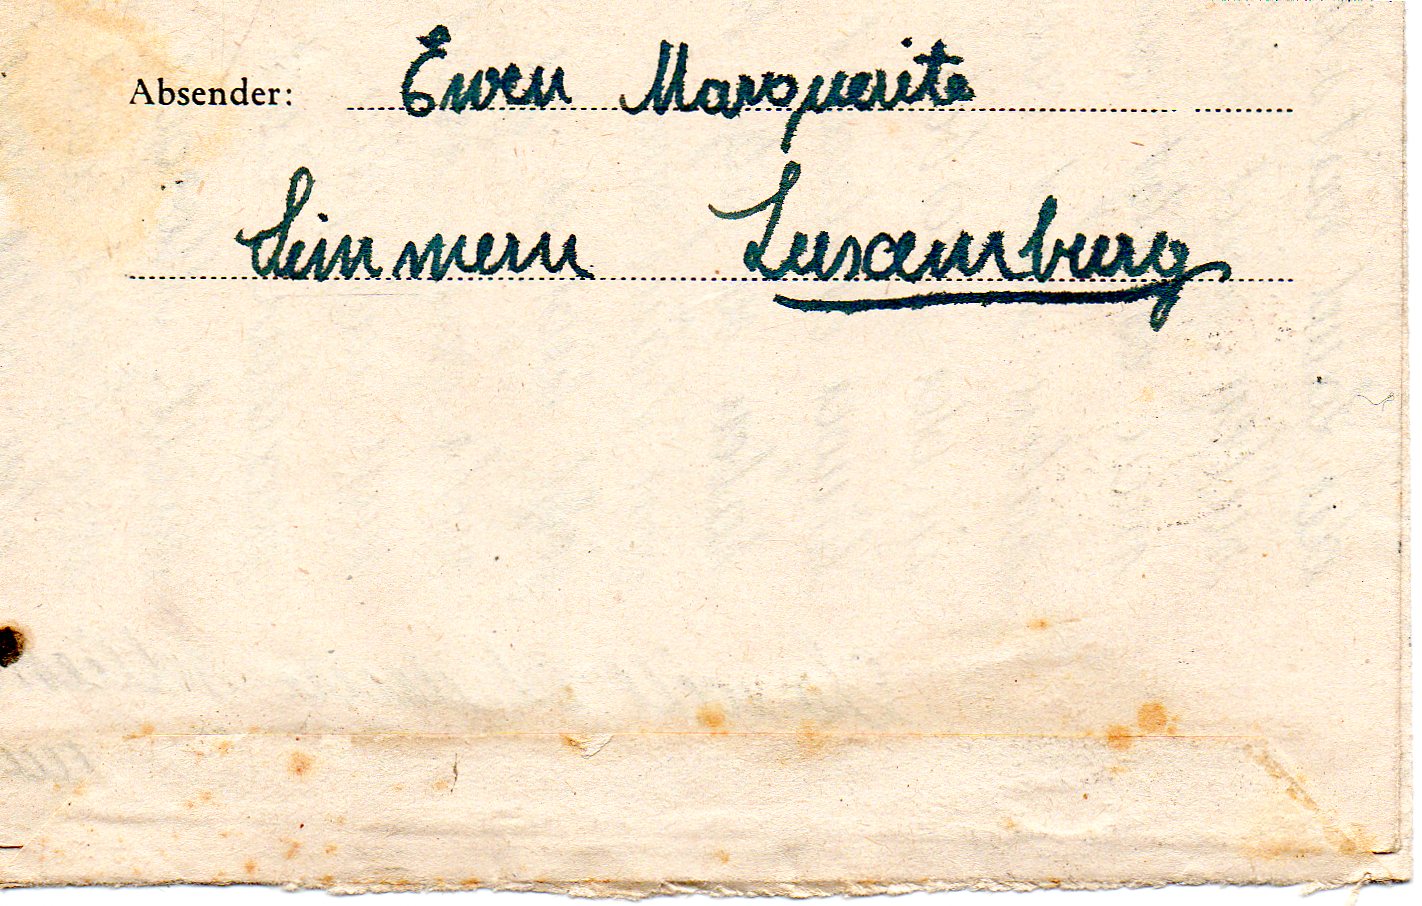 Absender: Ewen Marguerite
Simmern Luxemburg